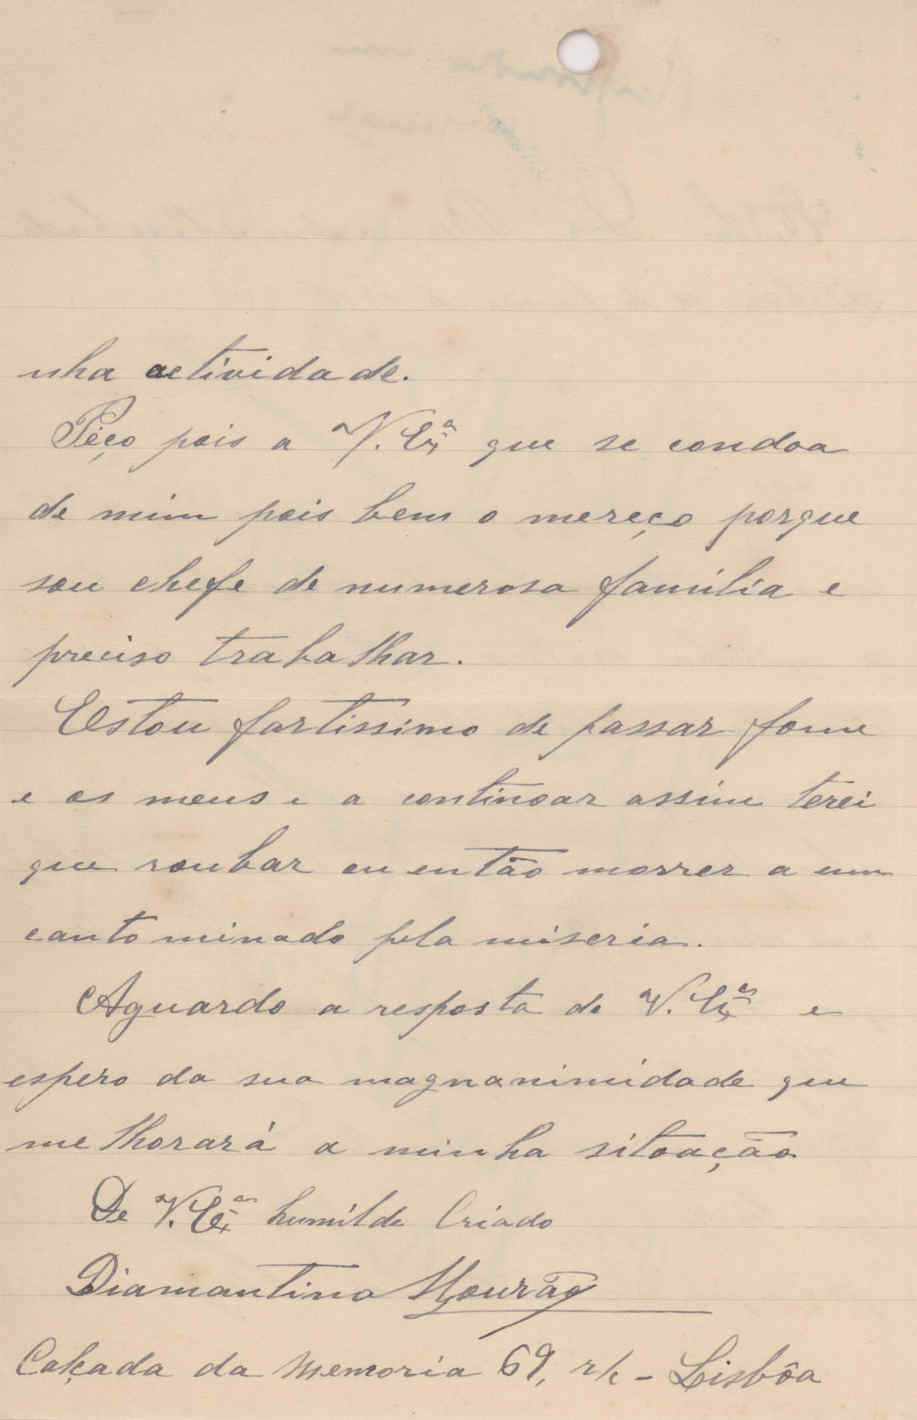 nha actividade.
Péço pois a V. Exª que se condoa
de mim pois bem o mereço porque
sou chefe de numerosa familia e
preciso trabalhar.
Estou fartissimo de passar fome
e os meus e a continoar assim terei
que roubar ou então morrer a um
canto minado pela miseria.
Aguardo a resposta de V. Exª e
espero da sua magnanimidade que
melhorará a minha sitoação
De V. Exª humilde Criado
Diamantino Mourão
Calçada da Memoria 69, r/c - Lisbôa